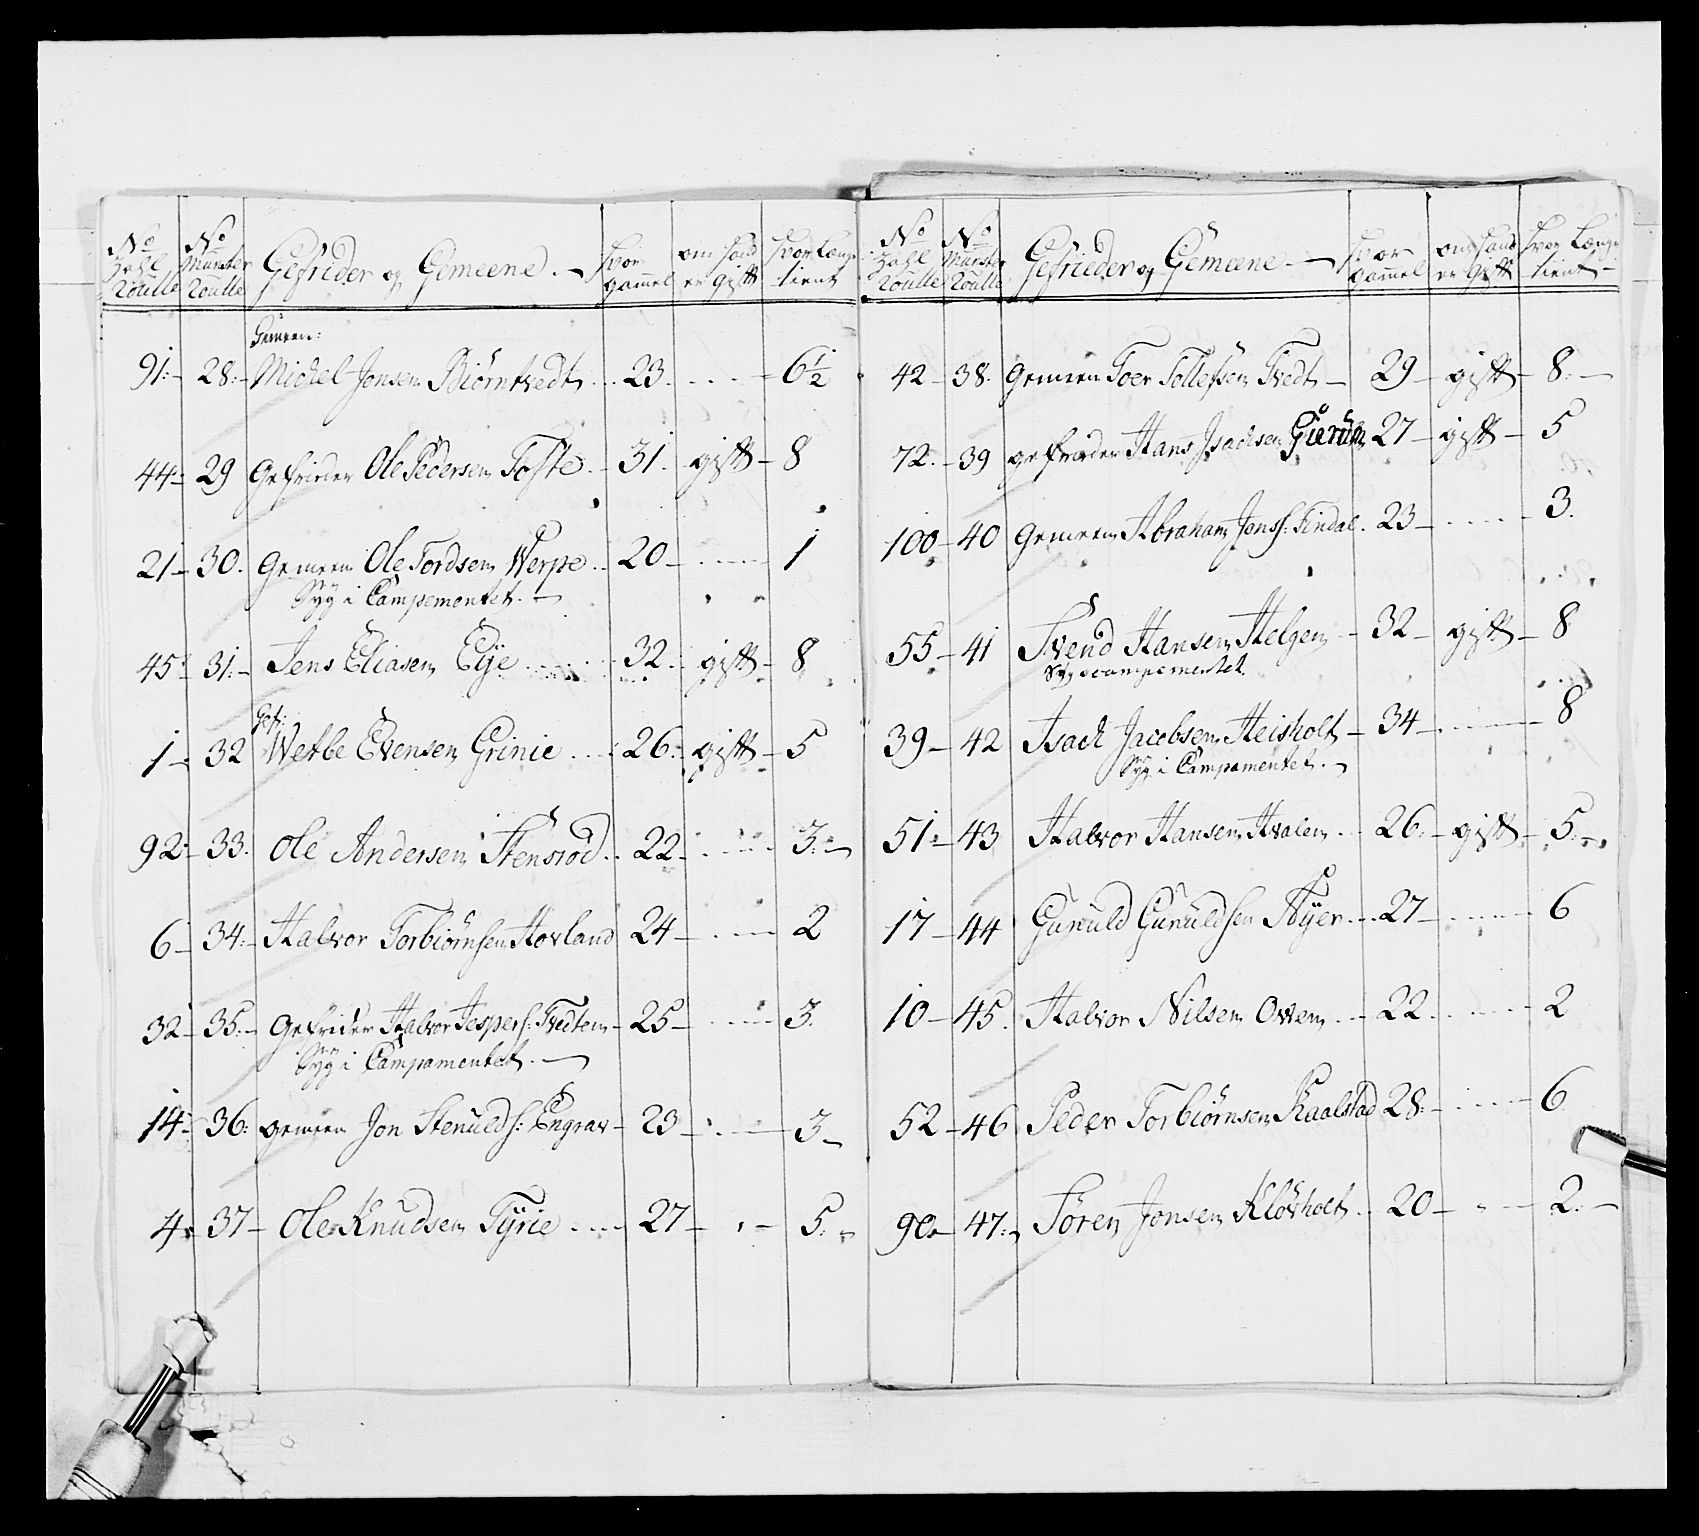 No Zahl Roulle | No Münster Roulle | Gefrider og Gemeene. | hvor gammel | om hand er gift | hvor Længe tient
Gemeen:
91. 28. Michel Jonsen Biörntvedt 23. 6½
44. 29 Gefrieder Ole Pedersen Tofte 31. gift 8
21 30. Gemeen Ole Tordsen Werpe 20 1
Syg i Campementet.
45. 31. Jens Eliasen Eÿe 32. gift 8
Gefr:
1 32 Wetle Evensen Grinie 26. gift 5
92. 33. Ole Andersen Stensröd 22 3.
6 34. Halvor Torbiörnsen Hovland 24 2
32 35. Gefrider Halvor Jespers: Tvedten 25 3.
Syg i Campamentet.
14. 36. gemeen Jon Stenulds: Engrav 23 3
4. 37 Ole Knudsen Tÿrie 27 5.
No Zahl Roulle | No Münster Roulle | Gefrieder og Gemeene | hvor gammel | om hand er gift | hvor Længe tient
42 38. Gemeen Toer Tollefsen Tvedt 29 gift 8.
72. 39 gefreider Hans Isachsen 27 gift 5
100 40 Gemeen Abraham Jons: Findal. 23 3.
55 41 Svend Hansen Helgen 32 gift 8
Syg i campementet
39 42 Isach Jacobsen Heisholt 34 8
Syg i Campamentet.
51. 43 Halvor Hansen Hvalen 26. gift 5.
17 44 Gunuld Gunuldsen Aÿer 27 6
10 45. Halvor Nilsen Owen 22 2
52 46 Peder Torbiörnsen Kaalstad 28. 6
90. 47. Sören Jonsen Klövholt 20 2.